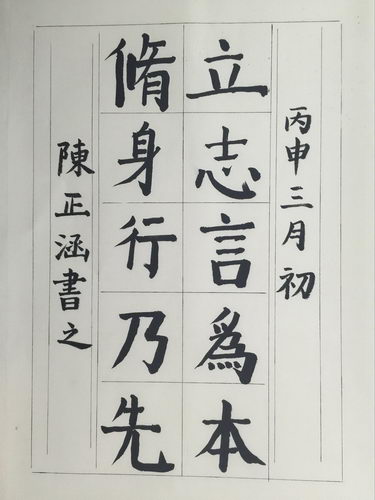 丙申三月初
立志言為本
脩身行乃先
陳正涵書之